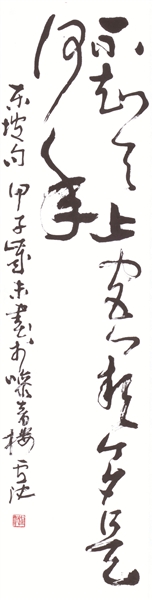 不知天上宮闕今夕是
何年
东坡句 甲子歲末書於 樓